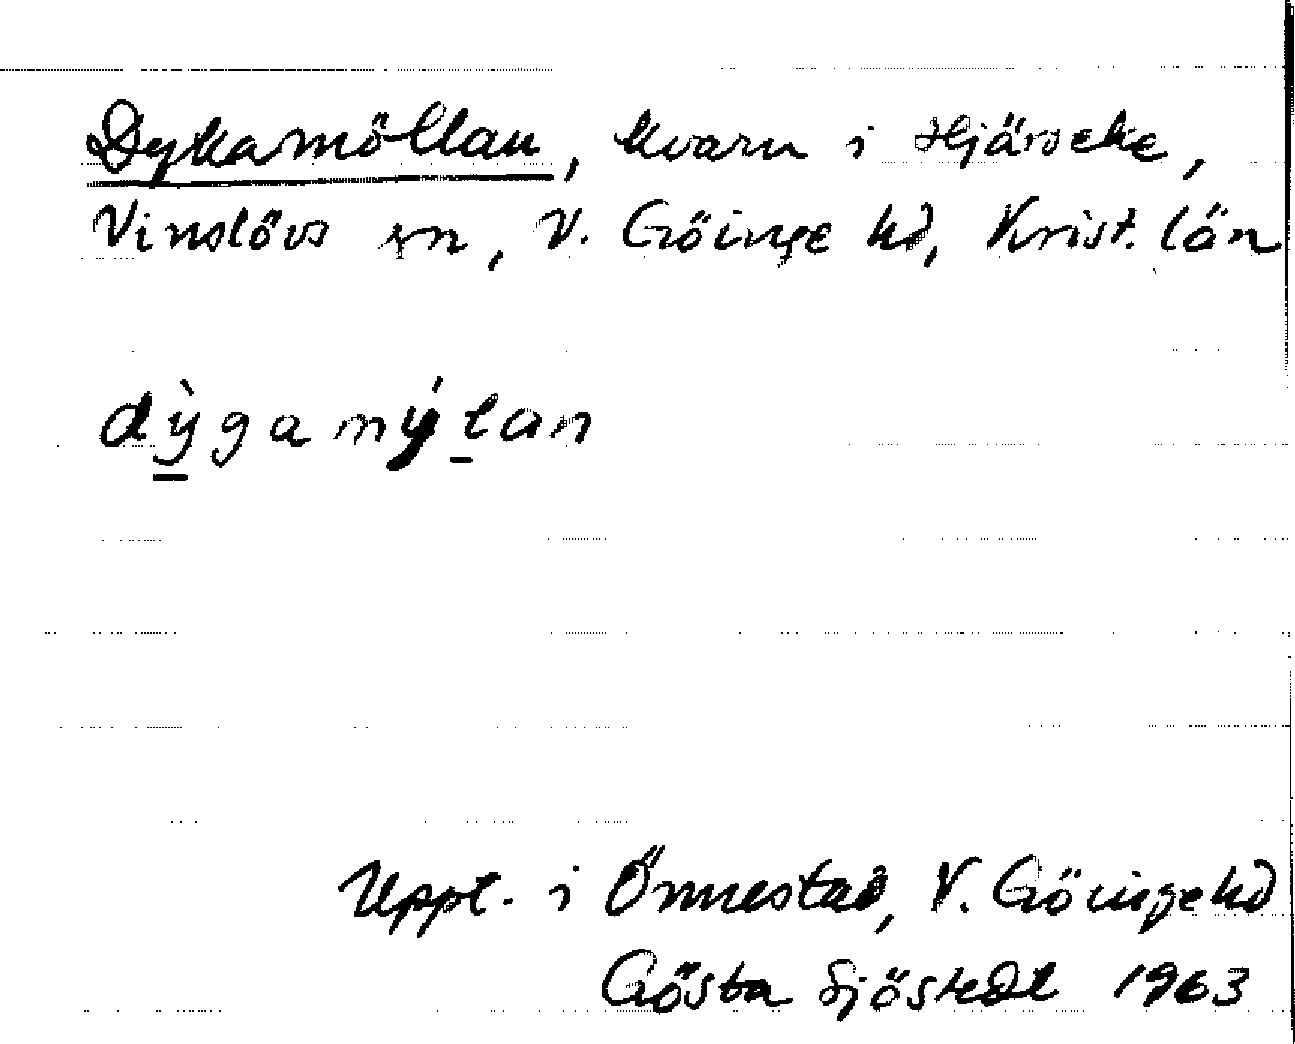 Dykamöllan, kvarn i Hjärseke,
Vinslövs sn, V. Göinge hd, Krist. län
dỳgamýlan
Uppt. i Önnestad, V. Göinge hd
Gösta Sjöstedt 1963